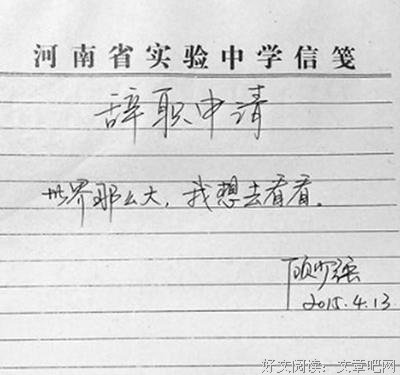 河南省实验中学信笺
辞职申请
世界那么大，我想去看看。
顾少强
2015.4.13
好文阅读：文章吧网